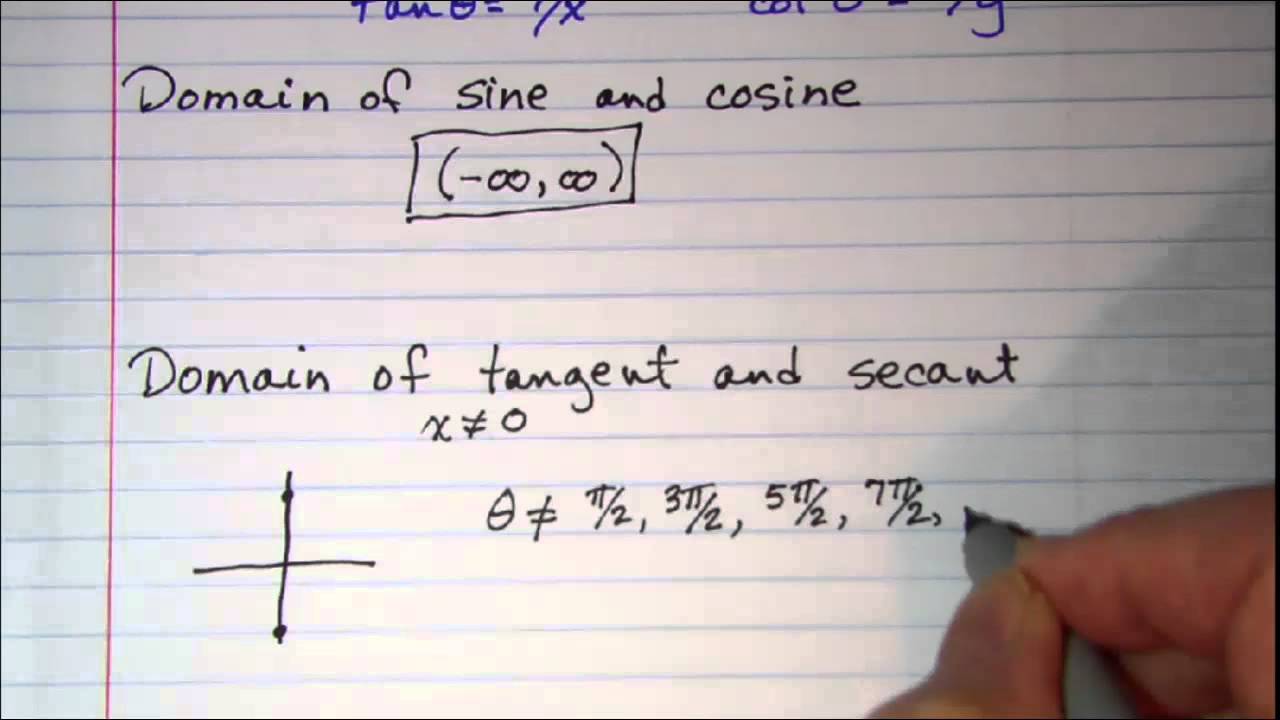 tan θ = y/x cot θ = x/y
Domain of sine and cosine
(-∞, ∞)
Domain of tangent and secant
x ≠ 0
θ ≠ π/2, 3π/2, 5π/2, 7π/2,